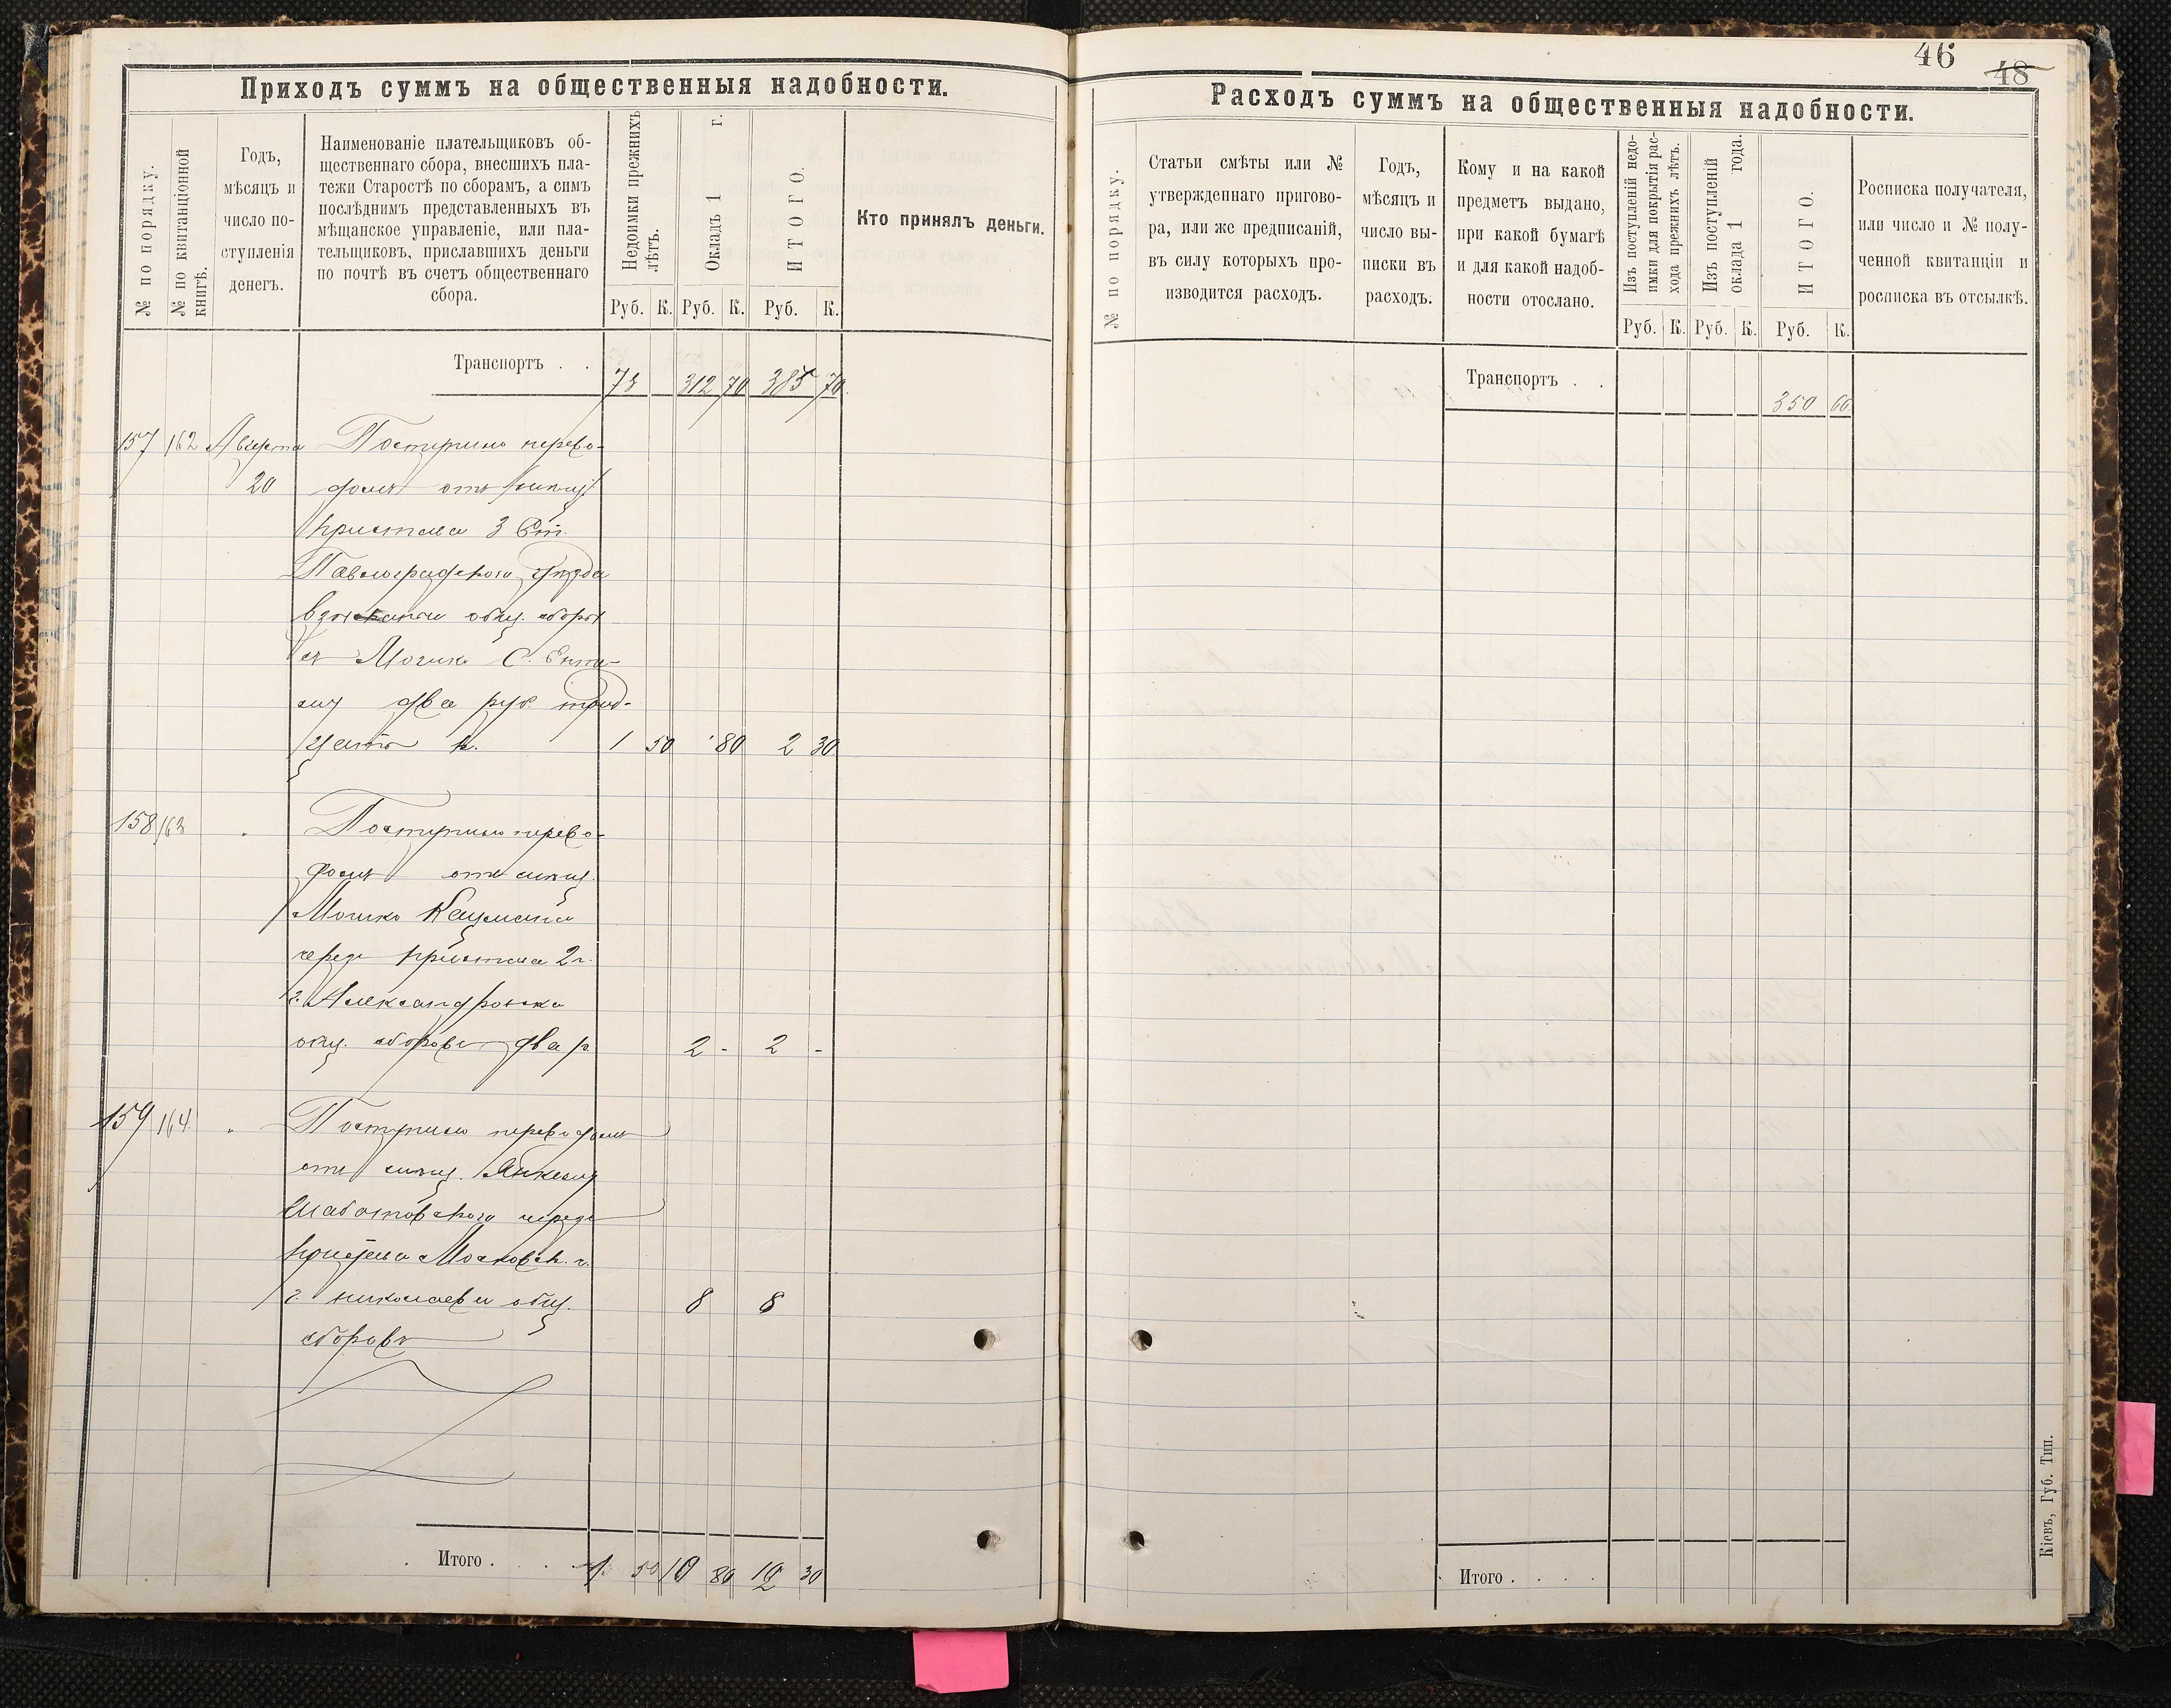 46
48
Приходъ суммъ на общественныя надобности.
№ по порядку.
№ по квитанціонной
книгѣ.
Годъ,
мѣсяцъ и
число по-
ступленія
денегъ.
Наименованіе плательщиковъ об-
щественнаго сбора, внесшихъ пла-
тежи Старостѣ по сборамъ, а симъ
послѣднимъ представленныхъ въ
мѣщанское управленіе, или пла-
тельщиковъ, приславшихъ деньги
по почтѣ въ счетъ общественнаго
сбора.
Недоимки прежнихъ
лѣтъ.
Окладъ 1 г.
ИТОГО.
Кто принялъ деньги.
Руб. К. Руб. К. Руб. К.
Транспортъ . .
73 312 70 385 70
157 162 Августа Поступило перево-
20 домъ отъ
Пристава 3 Ст.
Павлоградскаго уѣзда
взысканные общ. сборы
съ Мошко С.
два руб. трид-
цать к. 1 50 80 2 30
158 163 Поступило перево-
домъ отъ мѣщ.
Мошко Кацмана
чрезъ Пристава 2 ч.
г. Александровска
общ. сборовъ два р. 2 - 2 -
159 164 Поступило переводомъ
отъ мѣщ. Янкеля
чрезъ
Пристава Московск. ч.
г. Николаева общ. 8 8
сборовъ
Итого . . . . 1 50 10 80 12 30
Расходъ суммъ на общественныя надобности.
№ по порядку.
Статьи смѣты или №
утвержденнаго пригово-
ра, или же предписаній,
въ силу которыхъ про-
изводится расходъ.
Годъ,
мѣсяцъ и
число вы-
писки въ
расходъ.
Кому и на какой
предметъ выдано,
при какой бумагѣ
и для какой надоб-
ности отослано.
Изъ поступленій недо-
имки для покрытія рас-
хода прежнихъ лѣтъ.
Изъ поступленій
оклада 1 года.
ИТОГО.
Росписка получателя,
или число и № полу-
ченной квитанціи и
росписка въ отсылкѣ.
Руб. К. Руб. К. Руб. К.
Транспортъ . .
350 60
Итого . . . .
Кіевъ, Губ. Тип.